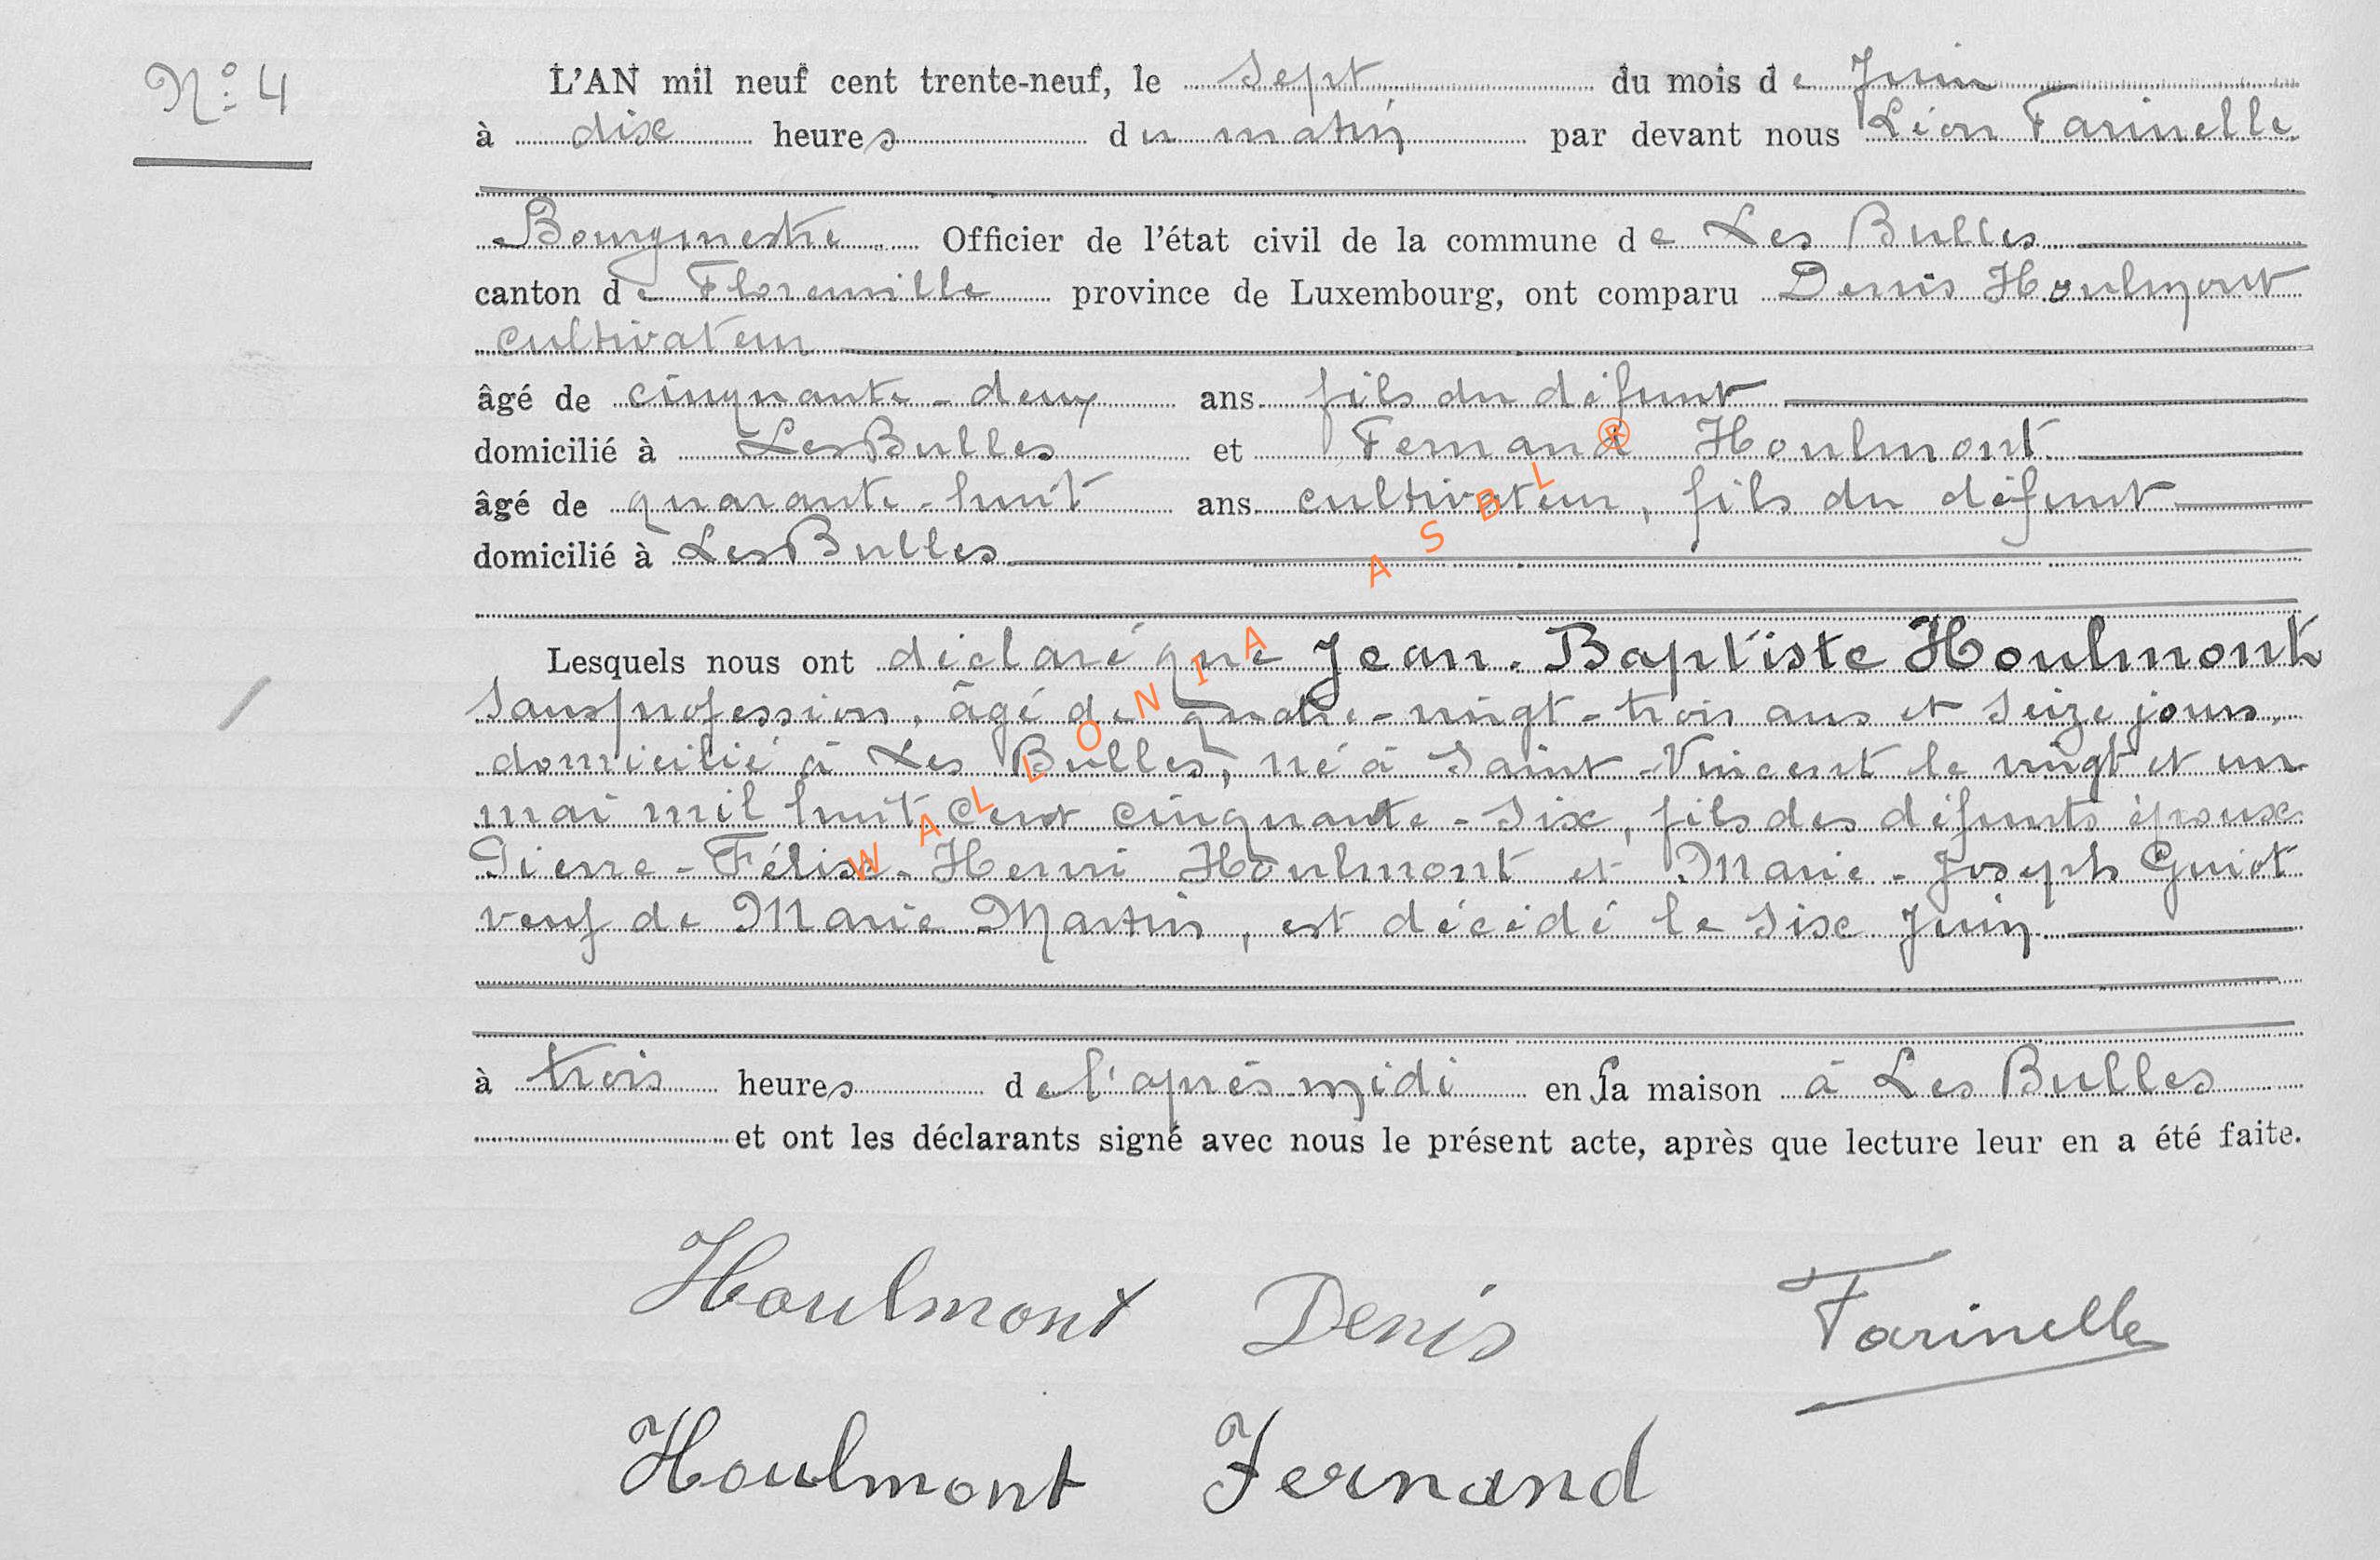 N° 4
L'AN mil neuf cent trente-neuf, le sept du mois de Juin
à dix heures du matin par devant nous Léon Farinelle
Bourgmestre Officier de l'état civil de la commune de Les Bulles
canton de Florenville province de Luxembourg, ont comparu Denis Houlmont
cultivateur
âgé de cinquante-deux ans fils du défunt
domicilié à Les Bulles et Fernand Houlmont
âgé de quarante-huit ans cultivateur, fils du défunt
domicilié à Les Bulles
Lesquels nous ont déclaré que Jean-Baptiste Houlmont
sans profession, âgé de quatre-vingt-trois ans et seize jours,
domicilié à Les Bulles, né à Saint-Vincent le vingt et un
mai mil huit cent cinquante-six, fils des défunts époux
Pierre-Félix-Henri Houlmont et Marie-Joseph Guiot
veuf de Marie Martin, est décédé le six Juin
à trois heures de l'après-midi en sa maison à Les Bulles
et ont les déclarants signé avec nous le présent acte, après que lecture leur en a été faite.
Houlmont Denis Farinelle
Houlmont Fernand
WALLONIA ASBL ®